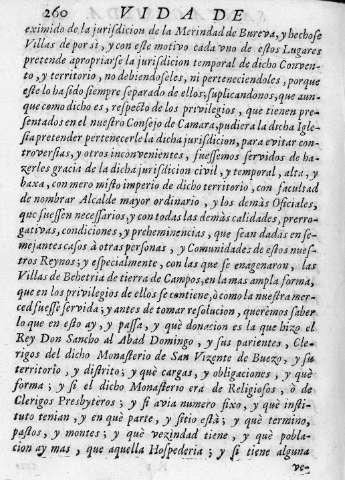 260 VIDA DE
eximido de la jurisdicion de la Merindad de Bureva, y hechose
Villas de por si, y con este motivo cada vno de estos Lugares
pretende apropriarse la jurisdicion temporal de dicho Conven-
to, y territorio, no debiendoseles, ni perteneciendoles, porque
este lo ha sido siempre separado de ellos; suplicandonos, que aun-
que como dicho es, respecto de los privilegios, que tienen pre-
sentados en el nuestro Consejo de Camara, pudiera la dicha Igle-
sia pretender pertenecerle la dicha jurisdicion, para evitar con-
troversias, y otros inconvenientes, fuessemos servidos de ha-
zerles gracia de la dicha jurisdicion civil, y temporal, alta, y
baxa, con mero misto imperio de dicho territorio, con facultad
de nombrar Alcalde mayor ordinario, y los demàs Oficiales,
que fuessen necessarios, y con todas las demàs calidades, prerro-
gativas, condiciones, y preheminencias, que sean dadas en se-
mejantes casos à otras personas, y Comunidades de estos nues-
tros Reynos; y especialmente, con las que se enagenaron, las
Villas de Behetria de tierra de Campos, en la mas ampla forma,
que en los privilegios de ellos se contiene, ò como la nuestra mer-
ced fuesse servida; y antes de tomar resolucion, querèmos saber
lo que en esto ay, y passa, y què donacion es la que hizo el
Rey Don Sancho al Abad Domingo, y sus parientes, Cle-
rigos del dicho Monasterio de San Vizente de Buezo, y su
territorio, y distrito; y què cargas, y obligaciones, y què
forma; y si el dicho Monasterio era de Religiosos, ò de
Clerigos Presbyteros; y si avia numero fixo, y què insti-
tuto tenian, y en què parte, y sitio està; y què termino,
pastos, y montes; y què vezindad tiene, y què pobla-
cion ay mas, que aquella Hospederia; y si tiene alguna
ve-